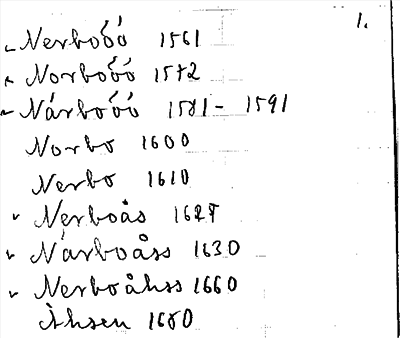 1.
Nerboóó 1561
Norboóó 1572
Nárboóó 1581 - 1591
Norbo 1600
Nerbo 1610
Nerboås 1627
Nårboåss 1630
Nerboåhss 1660
Åhsen 1680